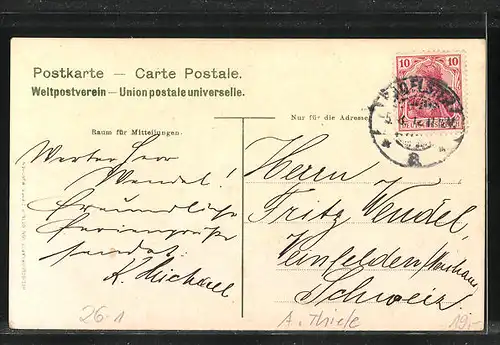 Postkarte — Carte Postale.
Weltpostverein — Union postale universelle.
Nur für die Adresse
Raum für Mitteilungen.
10 10
Werter Herr
Wendel!
Freundliche
Feriengrüße
sendet
K. Michael
Herrn
Fritz Wendel,
Weinfelden
Schweiz
26-1
A. Thiele
19.-